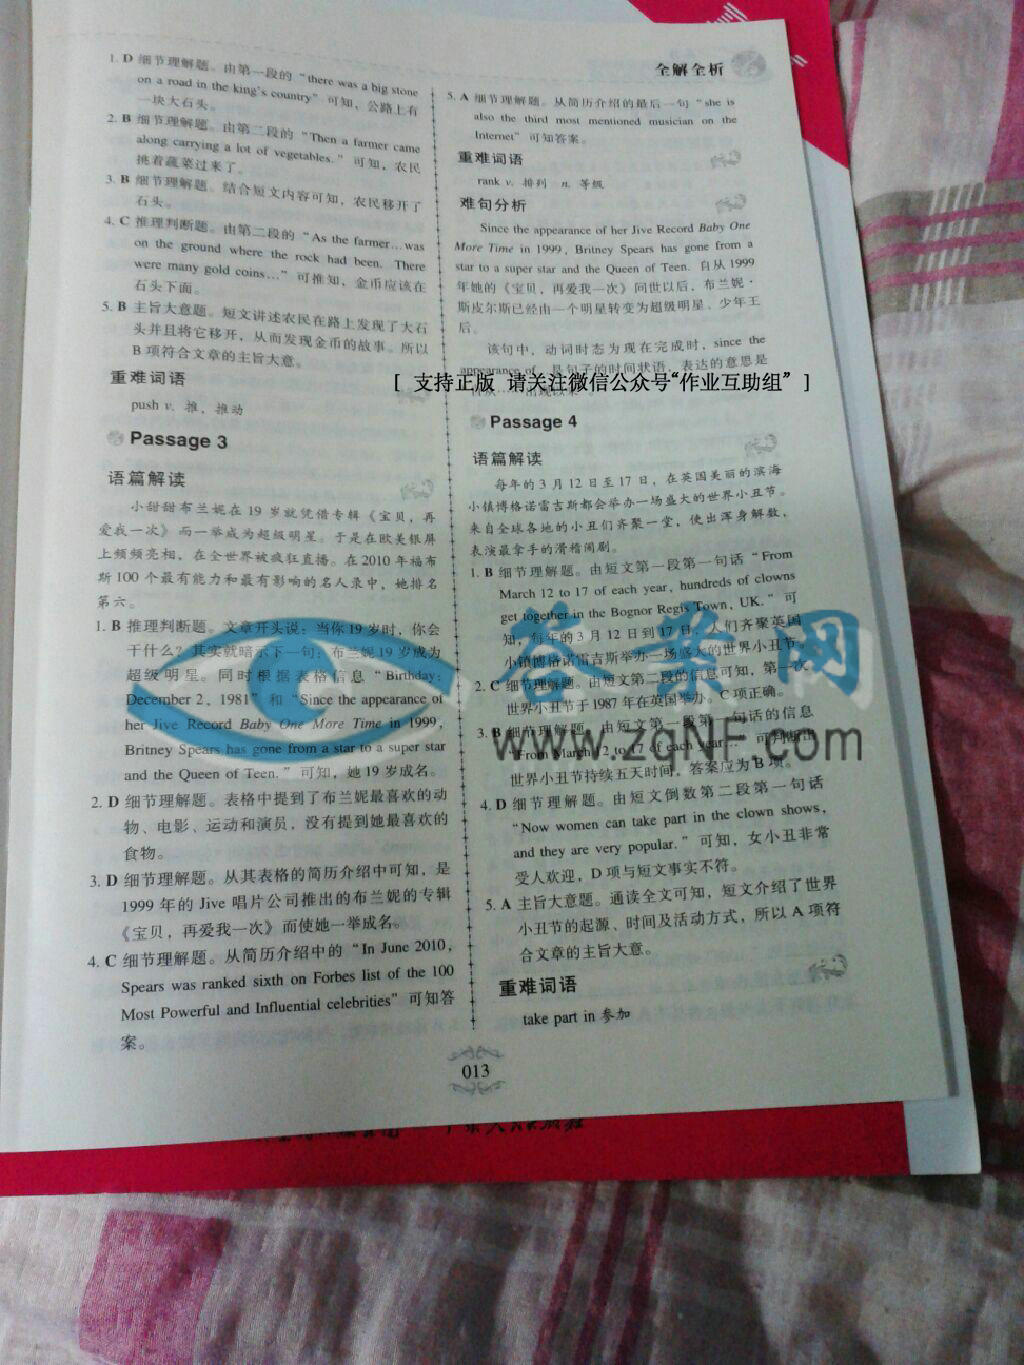 全解全析
1. D 细节理解题。由第一段的“there was a big stone
on a road in the king's country”可知，公路上有
一块大石头。
2. B 细节理解题。由第二段的“Then a farmer came
along carrying a lot of vegetables.”可知，农民
挑着蔬菜过来了。
3. B 细节理解题。结合短文内容可知，农民移开了
石头。
4. C 推理判断题。由第二段的“As the farmer…was
on the ground where the rock had been. There
were many gold coins…”可推知，金币应该在
石头下面。
5. B 主旨大意题。短文讲述农民在路上发现了大石
头并且将它移开，从而发现金币的故事。所以
B 项符合文章的主旨大意。
重难词语
push v. 推，推动
Passage 3
语篇解读
小甜甜布兰妮在 19 岁就凭借专辑《宝贝，再
爱我一次》而一举成为超级明星。于是在欧美银屏
上频频亮相，在全世界被疯狂直播。在 2010 年福布
斯 100 个最有能力和最有影响的名人录中，她排名
第六。
1. B 推理判断题。文章开头说：当你 19 岁时，你会
干什么？其实就暗示下一句：布兰妮 19 岁成为
超级明星。同时根据表格信息“Birthday:
December 2, 1981”和“Since the appearance of
her Jive Record Baby One More Time in 1999,
Britney Spears has gone from a star to a super star
and the Queen of Teen.”可知，她 19 岁成名。
2. D 细节理解题。表格中提到了布兰妮最喜欢的动
物、电影、运动和演员，没有提到她最喜欢的
食物。
3. D 细节理解题。从其表格的简历介绍中可知，是
1999 年的 Jive 唱片公司推出的布兰妮的专辑
《宝贝，再爱我一次》而使她一举成名。
4. C 细节理解题。从简历介绍中的“In June 2010,
Spears was ranked sixth on Forbes list of the 100
Most Powerful and Influential celebrities”可知答
案。
5. A 细节理解题。从简历介绍的最后一句“she is
also the third most mentioned musician on the
Internet”可知答案。
重难词语
rank v. 排列 n. 等级
难句分析
Since the appearance of her Jive Record Baby One
More Time in 1999, Britney Spears has gone from a
star to a super star and the Queen of Teen. 自从 1999
年她的《宝贝，再爱我一次》问世以后，布兰妮·
斯皮尔斯已经由一个明星转变为超级明星、少年王
后。
该句中，动词时态为现在完成时，since the
appearance of…是句子的时间状语，表达的意思是
[ 支持正版 请关注微信公众号“作业互助组” ]
Passage 4
语篇解读
每年的 3 月 12 日至 17 日，在英国美丽的滨海
小镇博格诺雷吉斯都会举办一场盛大的世界小丑节。
来自全球各地的小丑们齐聚一堂，使出浑身解数，
表演最拿手的滑稽闹剧。
1. B 细节理解题。由短文第一段第一句话“From
March 12 to 17 of each year, hundreds of clowns
get together in the Bognor Regis Town, UK.”可
知，每年的 3 月 12 日到 17 日，人们齐聚英国
小镇博格诺雷吉斯举办一场盛大的世界小丑节。
2. C 细节理解题。由短文第二段的信息可知，第一次
世界小丑节于 1987 年在英国举办。C 项正确。
3. B 细节理解题。由短文第一段第一句话的信息
“From March 12 to 17 of each year…”可判断出
世界小丑节持续五天时间。答案应为 B 项。
4. D 细节理解题。由短文倒数第二段第一句话
“Now women can take part in the clown shows,
and they are very popular.”可知，女小丑非常
受人欢迎，D 项与短文事实不符。
5. A 主旨大意题。通读全文可知，短文介绍了世界
小丑节的起源、时间及活动方式，所以 A 项符
合文章的主旨大意。
重难词语
take part in 参加
013
答案网
www.zqNF.com